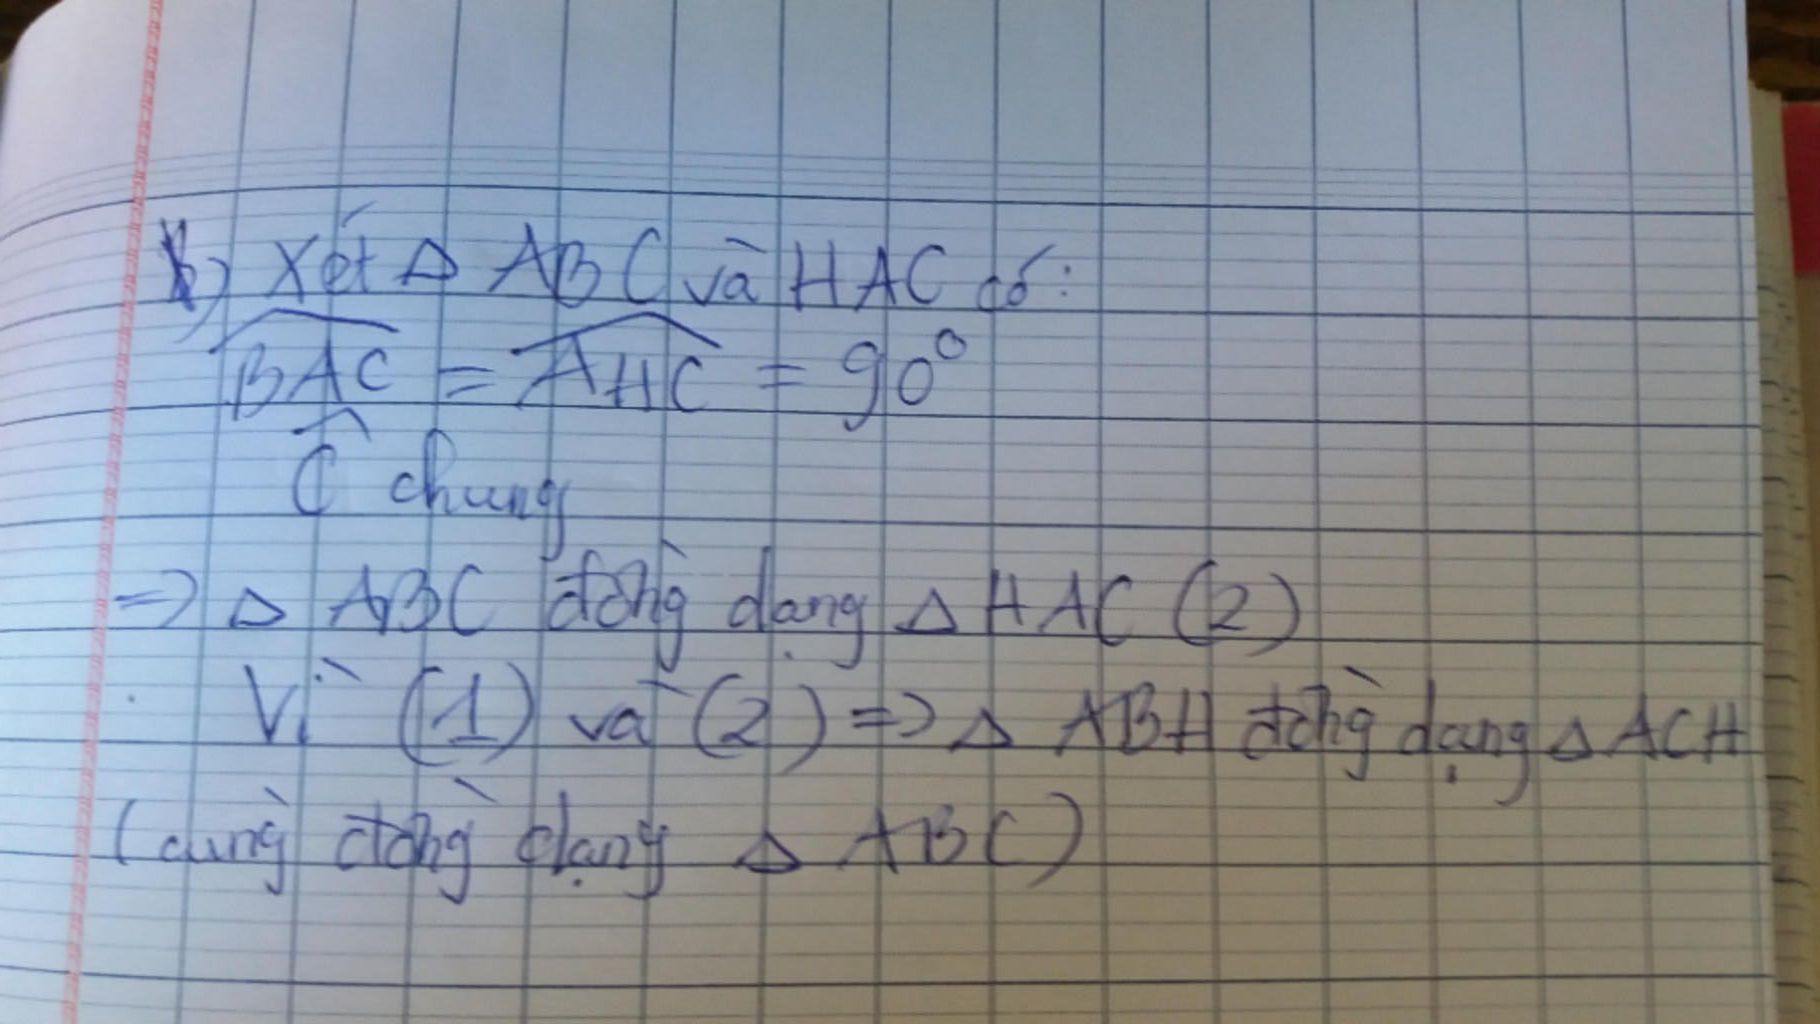 b) Xét Δ ABC và HAC có:
$\widehat{BAC}$ = $\widehat{AHC}$ = 90°
$\widehat{C}$ chung
=> Δ ABC đồng dạng Δ HAC (2)
Vì (1) và (2) => Δ ABH đồng dạng Δ ACH
(cùng đồng dạng Δ ABC)